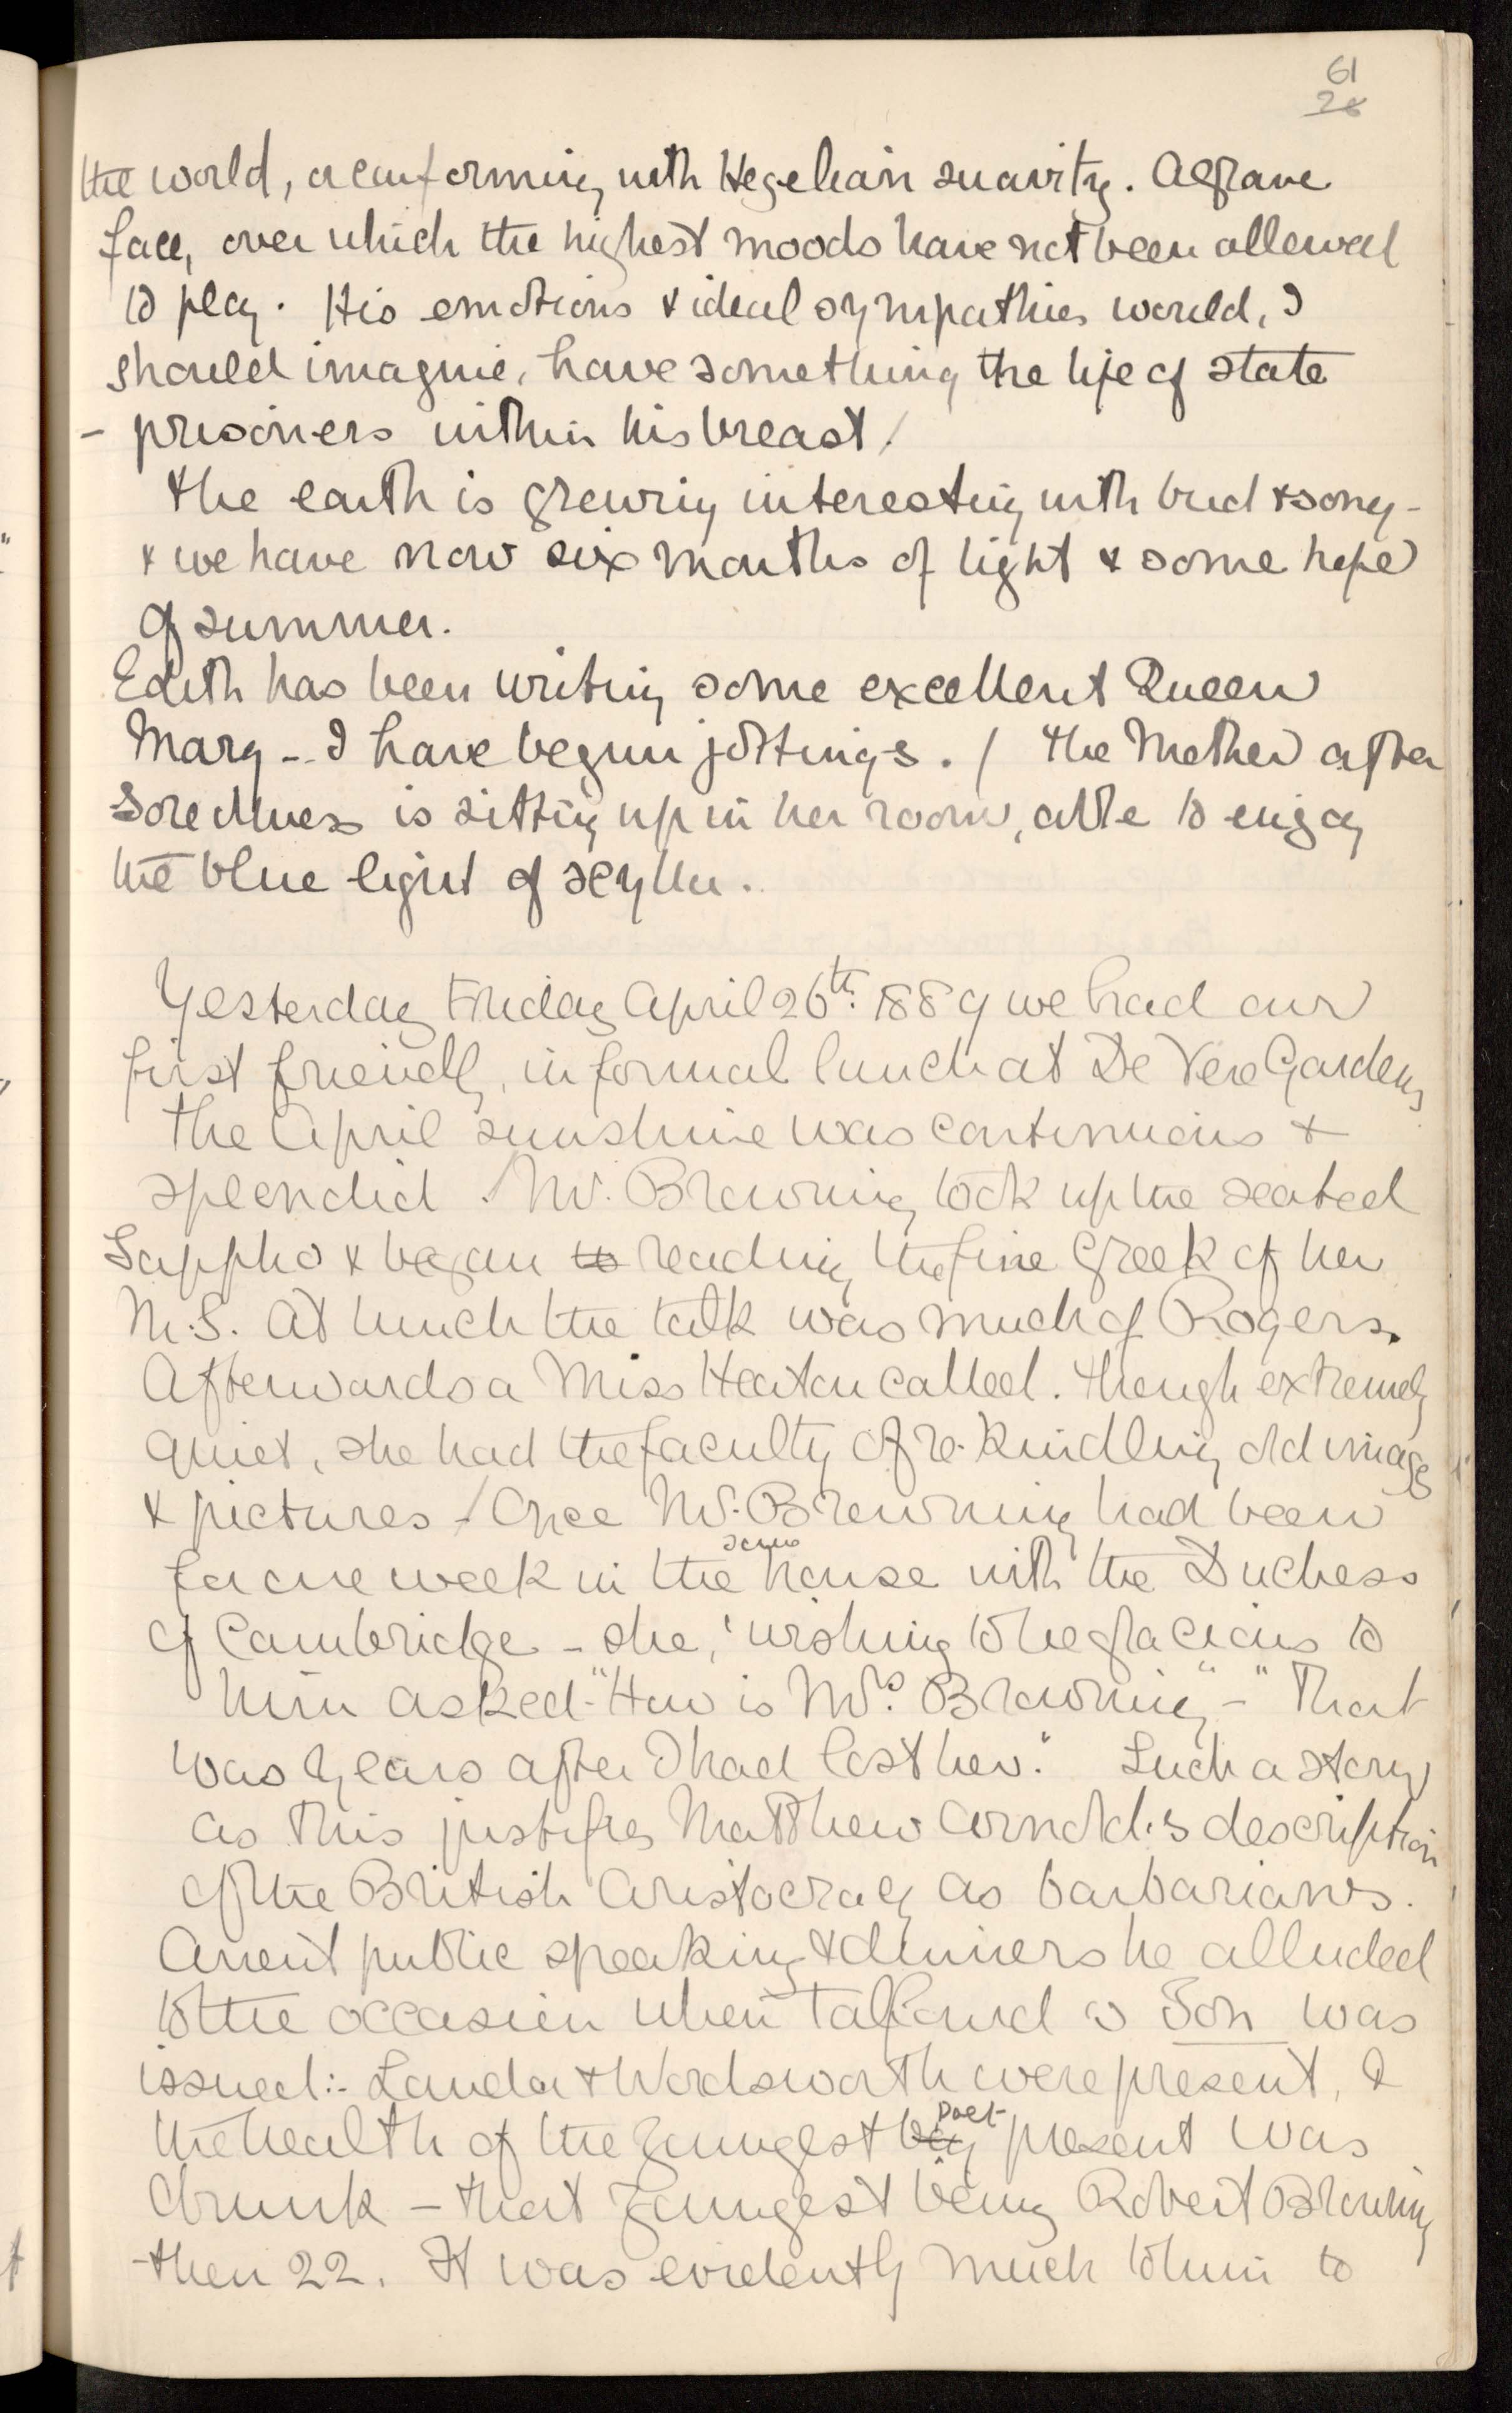 61
28
the world, a conforming with Hegelian suavity. A grave
face, over which the highest moods have not been allowed
to play. His emotions & ideal sympathies would, I
should imagine, have something the life of state
- prisoners within his breast /
The earth is growing interesting with bud & song -
& we have now six months of light & some hope
of summer.
Edith has been writing some excellent Queen
Mary -- I have begun jottings. / The Mother after
sore illness is sitting up in her room, able to enjoy
the blue light of scyllu.
Yesterday Friday April 26th. 1889 we had our
first friendly, informal lunch at De Vere Gardens
The April sunshine was continuous &
splendid. Mr. Browning took up the seated
Sappho & began to reading the fine Greek of her
M.S. At lunch the talk was much of Rogers.
Afterwards a Miss Heaton called. Though extremely
quiet, she had the faculty of re-kindling old images
& pictures - / Once Mr. Browning had been
for one week in the same house with the Duchess
of Cambridge - she, wishing to be gracious to
him asked - "How is Mrs. Browning" - "That
was years after I had lost her." Such a story
as this justifies Matthew Arnold's description
of the British Aristocracy as barbarians.
Anent public speaking & dinners he alluded
to the occasion when Talfourd's Ion was
issued:- Landor & Wordsworth were present, &
the health of the youngest boy poet present was
drunk - that youngest being Robert Browning
- then 22. It was evidently much to him to